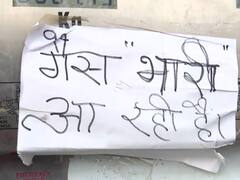 Kn
गैस "भारी"
आ रही है।